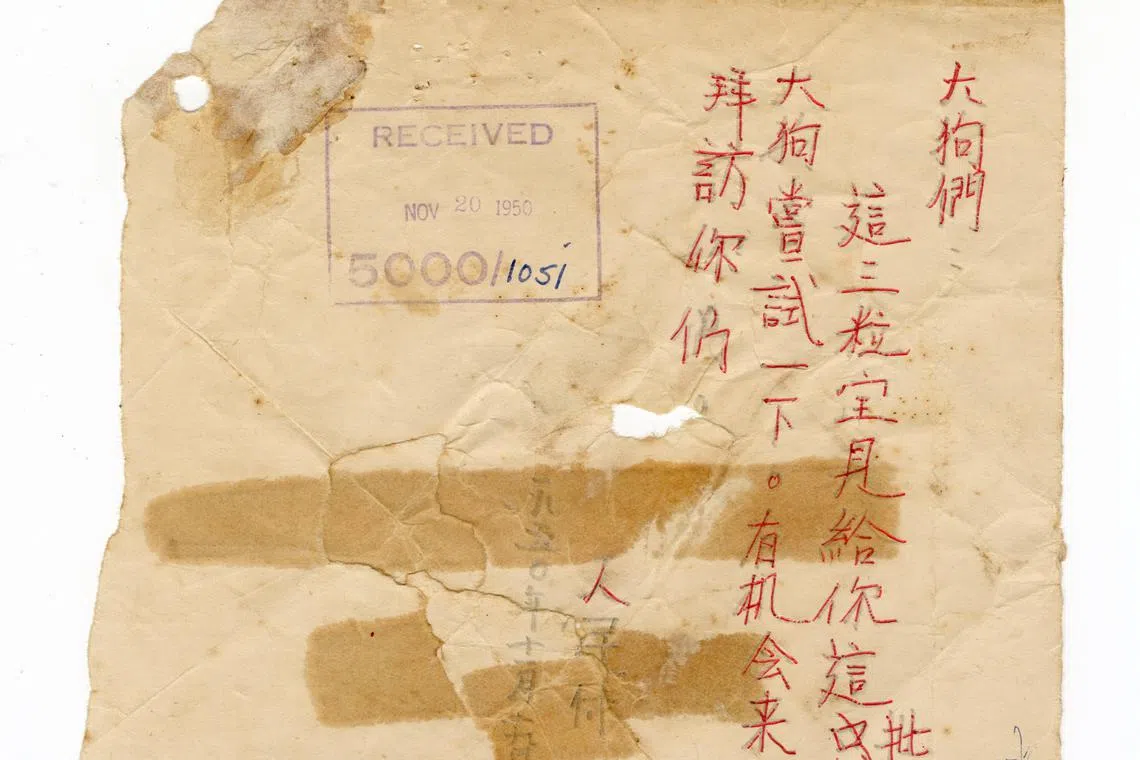 大狗們：
這三粒宝貝給你這
批
大狗嘗試一下。有机会来
拜訪你们
人
九五〇年十月
RECEIVED
NOV 20 1950
5000/1051